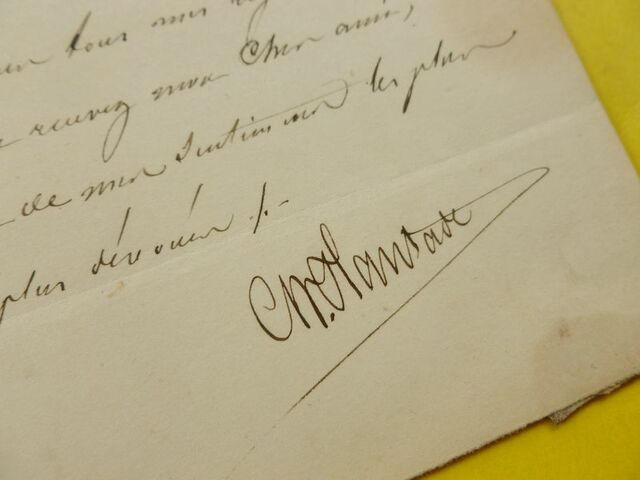 tous mes
recevez mon cher ami,
de mes sentiments les plus
plus dévoués ./.